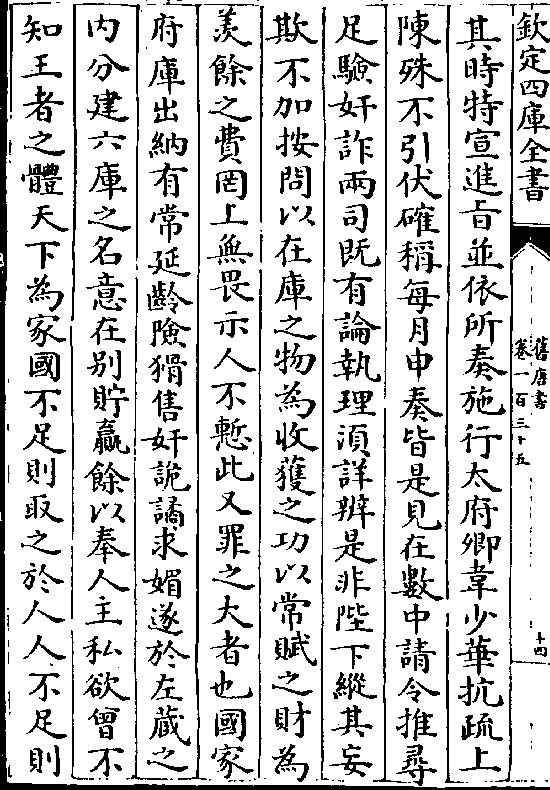 欽定四庫全書
舊唐書
卷一百三十五
十四
其時特宣進㫖並依所奏施行太府卿韋少華抗疏上
陳殊不引伏確稱每月申奏皆是見在數中請令推尋
足驗奸詐兩司既有論執理須詳辨是非陛下縱其妄
欺不加按問以在庫之物為收獲之功以常賦之財為
羨餘之費罔上無畏示人不慙此又罪之大者也國家
府庫出納有常延齡險猾售奸詭譎求媚遂於左藏之
内分建六庫之名意在别貯贏餘以奉人主私欲曾不
知王者之體天下為家國不足則取之於人人不足則